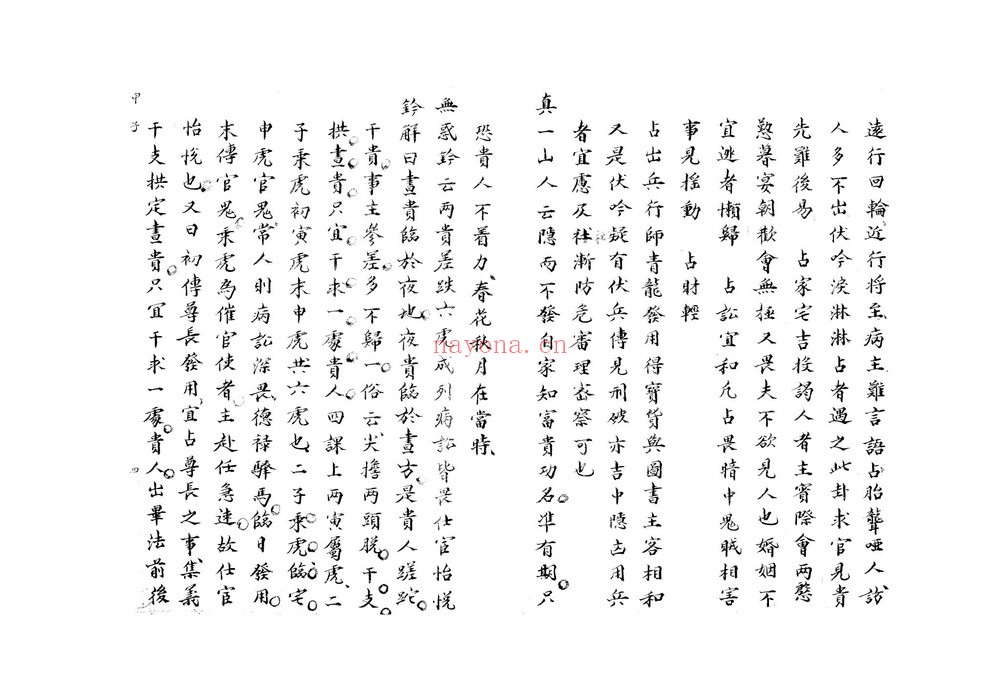 遠行回輪近行將至病主難言語占胎聾啞人訟
人多不出伏吟淚淋淋占者遇之此卦求官見貴
先難後易 占家宅吉投謁人者主賓際會兩慇
懃暮宴朝歡會無極又畏夫不欲見人也婚姻不
宜逃者懶歸 占訟宜和凡占畏暗中鬼賊相害
事見搖動 占財輕
占出兵行師青龍發用得寶貨與圖書主客相和
又是伏吟疑有伏兵傳見刑破亦吉中隱凶用兵
者宜慮及杜漸防危審理密察可也
真一山人云隱而不發自家知富貴功名準有期只
恐貴人不着力春花秋月在當時
無惑鈐云兩貴差跌六虎成列病訟皆畏仕官怡悅
鈐解曰晝貴臨於夜地夜貴臨於晝方是貴人蹉跎
干貴事主參差多不歸一俗云尖擔兩頭脫干支
拱晝貴只宜干求一處貴人四課上兩寅屬虎二
子乘虎初寅虎末申虎共六虎也二子乘虎臨宅
申虎官鬼常人則病訟深畏德祿驛馬臨日發用
末傳官鬼乘虎為催官使者主赴任急速故仕官
怡悅也又曰初傳尊長發用宜占尊長之事集義
干支拱定晝貴只宜干求一處貴人出畢法前後
甲子
四
nayona.cn